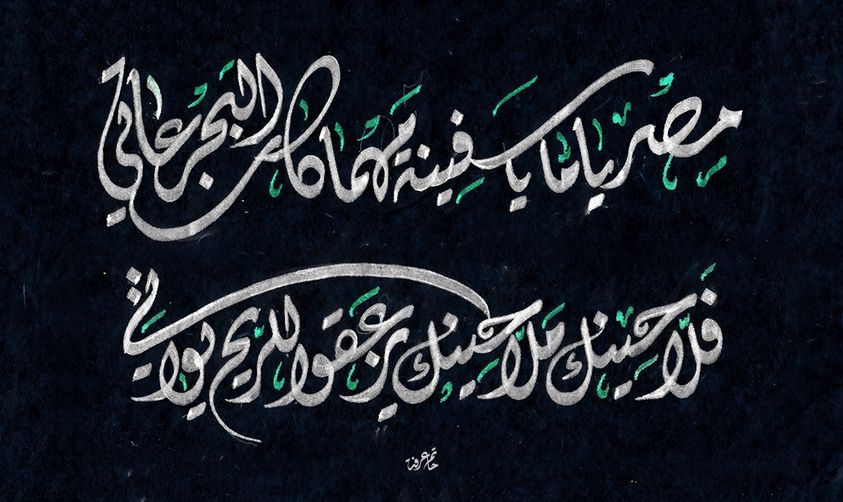 مصر يا ما يا سفينة مهما كان البحر عاتي
فلاحينك ملاحينك يزعقوا للريح يواتي
حاتم عرفة